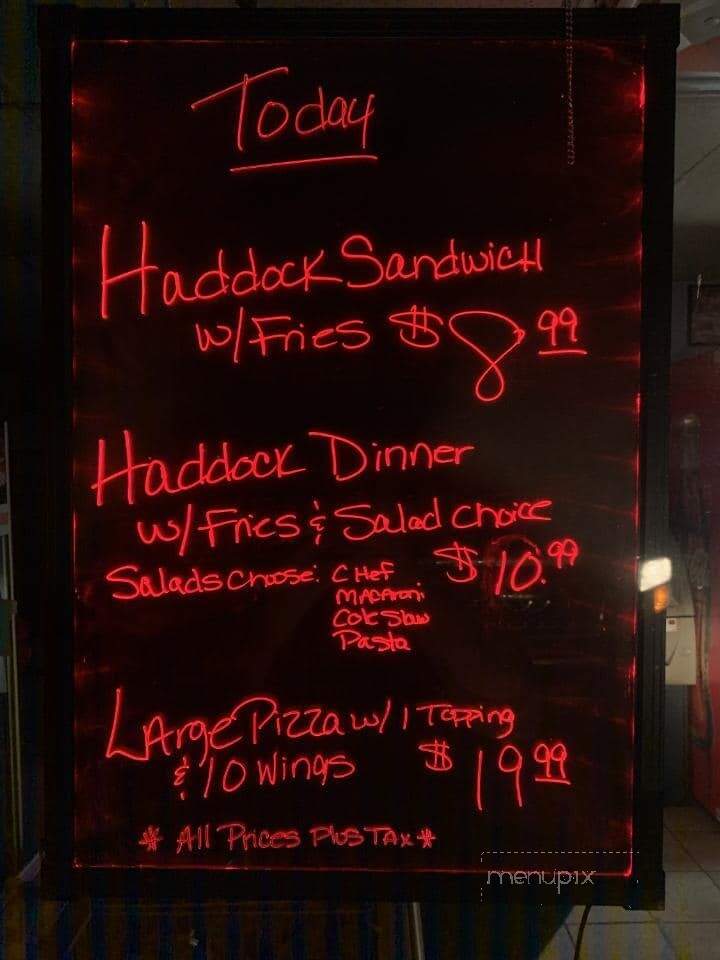 Today
Haddock Sandwich
w/ Fries $8.99
Haddock Dinner
w/ Fries & Salad choice
Salads choose: Chef $10.99
Macaroni
Cole Slaw
Pasta
Large Pizza w/ 1 Topping
& 10 Wings $19.99
* All Prices Plus Tax *
menupix